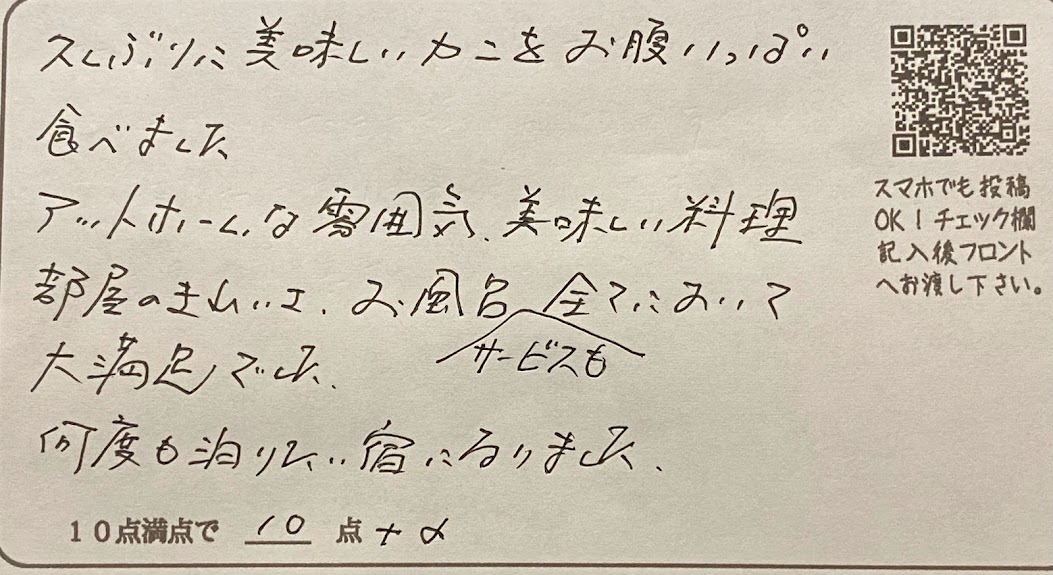 久しぶりに美味しいカニをお腹いっぱい
食べました
アットホームな雰囲気、美味しい料理
部屋のきれいさ、お風呂 全てにおいて
サービスも
大満足でした。
何度も泊りたい宿になりました。
10点満点で 10 点 + α
スマホでも投稿
OK!チェック欄
記入後フロント
へお渡し下さい。